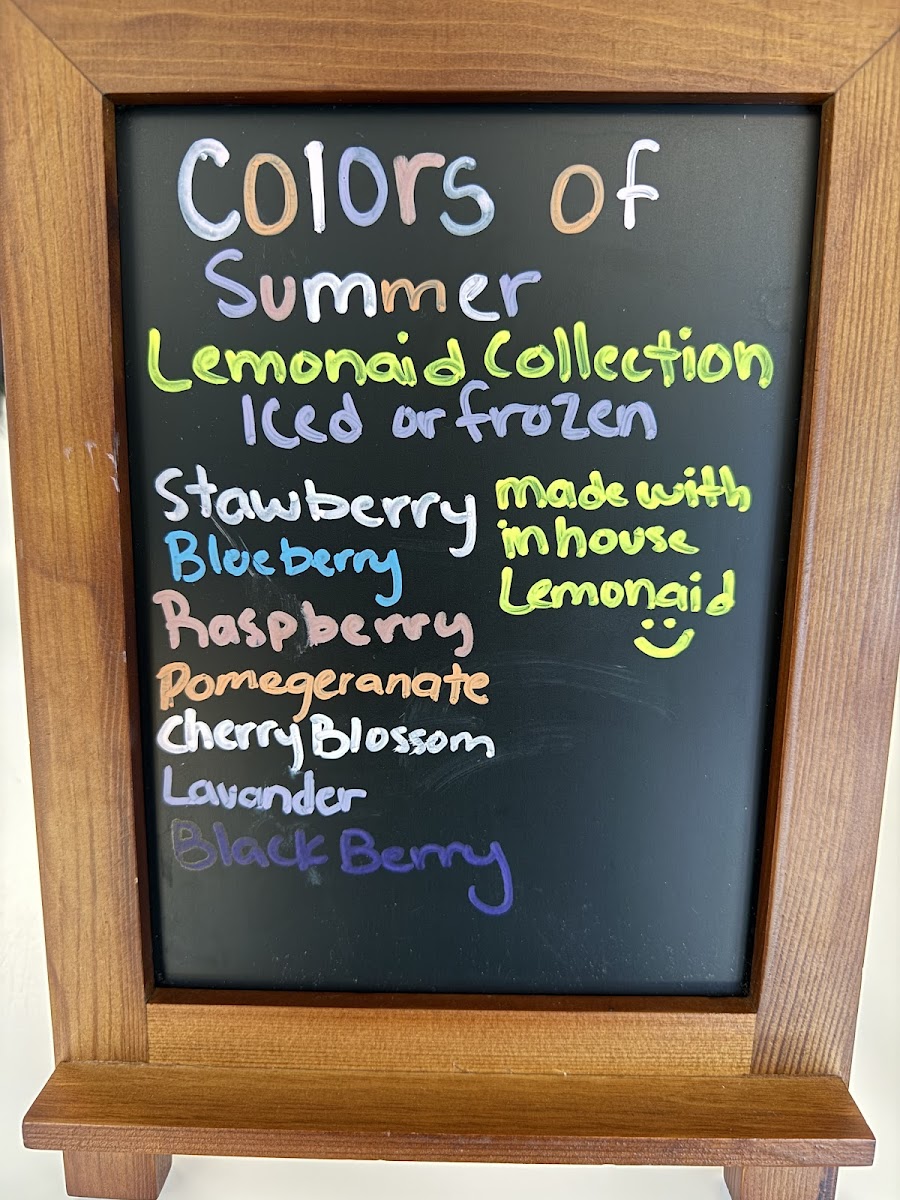 Colors of
Summer
Lemonaid Collection
Iced or frozen
Stawberry
Blueberry
Raspberry
Pomegeranate
Cherry Blossom
Lavander
Black Berry
made with
in house
Lemonaid